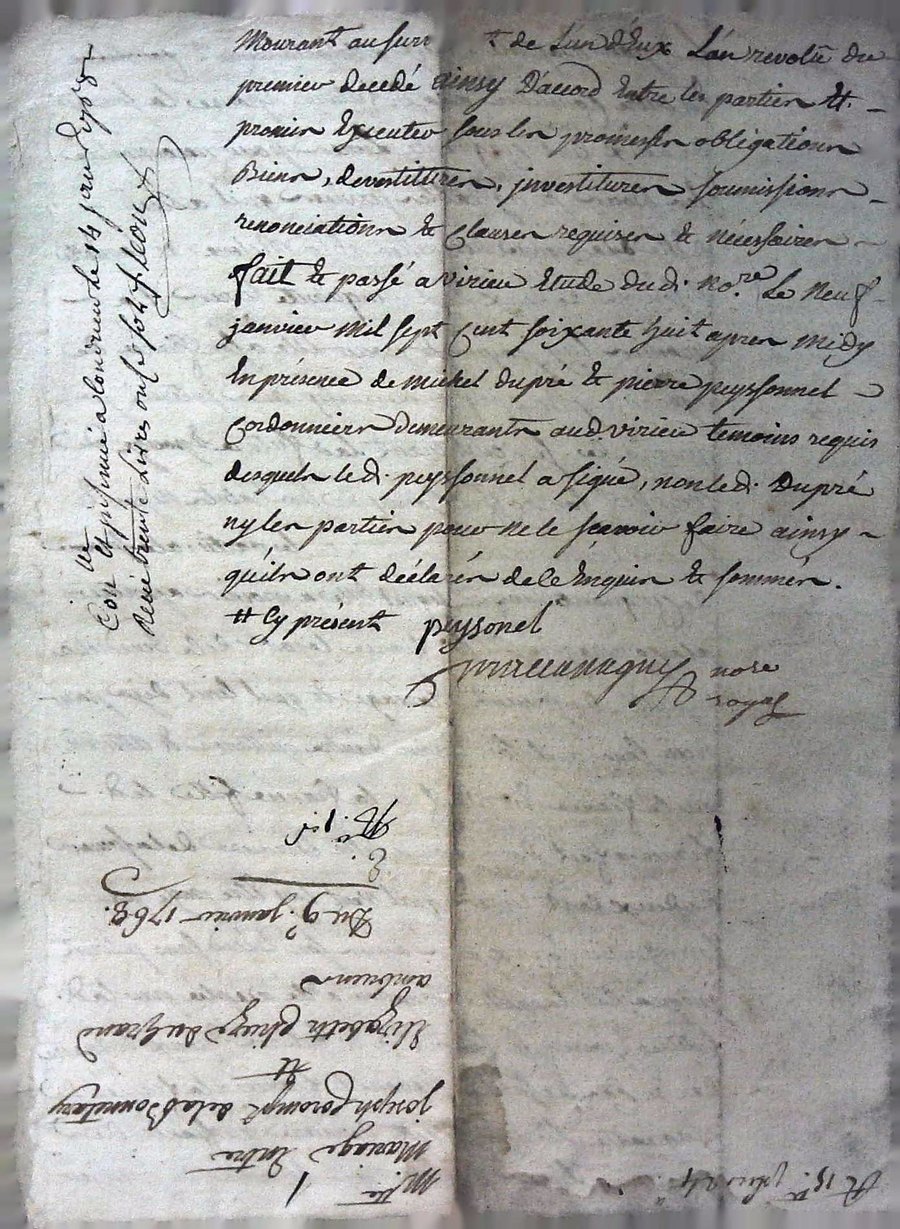 mourant au surv t de lun d'Eux L'an revolu du
premier decedé ainsy D'accord Entre les parties Et
promis Executer sous les promesses obligations
Biens, devestitures, jnvestitures soumissions
renonciations Et Clauses requises Et nécessaires
fait Et passé a virieu Etude du d. No.re Le Neuf
janvier Mil sept Cent soixante huit apres midy
En présence de Michel dupré Et pierre peyssonnel
Cordonniers Demeurants aud. virieu temoins requis
desquels led. peyssonnel a signé, non led. Dupré
ny les parties pour ne le scavoir faire ainsy
quils ont déclarés de ce Enquis Et sommés.
# Cy présents peysonel
nore
royal
Con.lle Et jnsinué a Condrieu le 14 janv. 1768
Reçu trente Livres onze sols
M.tte 1
Mariage Entre
joseph de la Bonnetary
Et
Elizabeth du grand
ambruens
Du 9.e janvier 1768.